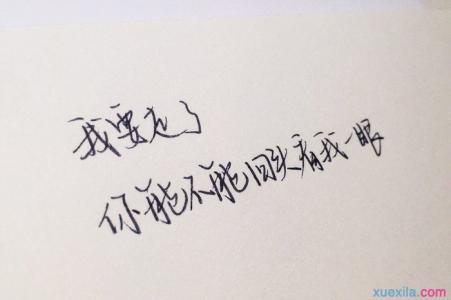 我要走了
你能不能回头看我一眼
xuexila.com